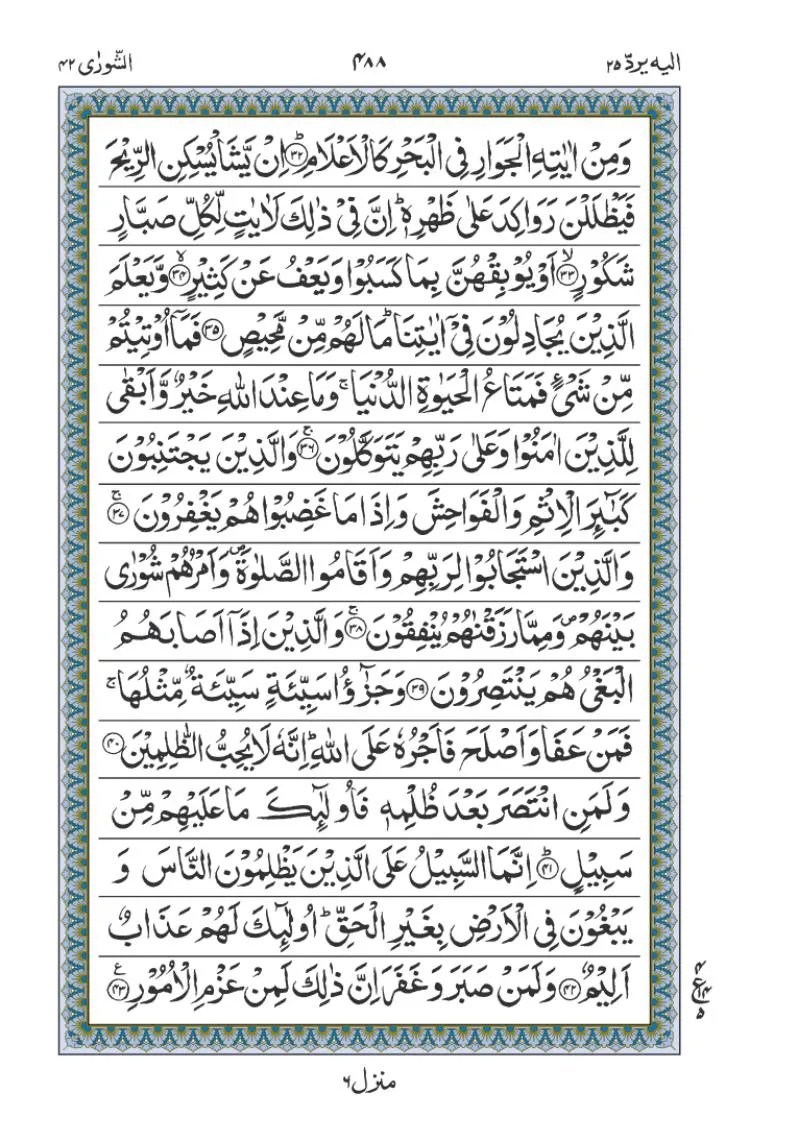 الیه یردّ ۲۵
۴۸۸
الشّورٰی ۴۲
وَمِنْ اٰیٰتِهِ الْجَوَارِ فِی الْبَحْرِ كَالْاَعْلَامِؕ۝۳۲ اِنْ یَّشَاْ یُسْكِنِ الرِّیْحَ
فَیَظْلَلْنَ رَوَاكِدَ عَلٰی ظَهْرِهٖؕ اِنَّ فِیْ ذٰلِكَ لَاٰیٰتٍ لِّكُلِّ صَبَّارٍ
شَكُوْرٍۙ۝۳۳ اَوْ یُوْبِقْهُنَّ بِمَا كَسَبُوْا وَیَعْفُ عَنْ كَثِیْرٍۙ۝۳۴ وَّیَعْلَمَ
الَّذِیْنَ یُجَادِلُوْنَ فِیْۤ اٰیٰتِنَاؕ مَا لَهُمْ مِّنْ مَّحِیْصٍ۝۳۵ فَمَاۤ اُوْتِیْتُمْ
مِّنْ شَیْءٍ فَمَتَاعُ الْحَیٰوةِ الدُّنْیَاۚ وَمَا عِنْدَ اللّٰهِ خَیْرٌ وَّاَبْقٰی
لِلَّذِیْنَ اٰمَنُوْا وَعَلٰی رَبِّهِمْ یَتَوَكَّلُوْنَۚ۝۳۶ وَالَّذِیْنَ یَجْتَنِبُوْنَ
كَبٰٓىِٕرَ الْاِثْمِ وَالْفَوَاحِشَ وَاِذَا مَا غَضِبُوْا هُمْ یَغْفِرُوْنَۚ۝۳۷
وَالَّذِیْنَ اسْتَجَابُوْا لِرَبِّهِمْ وَاَقَامُوا الصَّلٰوةَ۪ وَاَمْرُهُمْ شُوْرٰی
بَیْنَهُمْ۪ وَمِمَّا رَزَقْنٰهُمْ یُنْفِقُوْنَۚ۝۳۸ وَالَّذِیْنَ اِذَاۤ اَصَابَهُمُ
الْبَغْیُ هُمْ یَنْتَصِرُوْنَ۝۳۹ وَجَزٰٓؤُا سَیِّئَةٍ سَیِّئَةٌ مِّثْلُهَاۚ
فَمَنْ عَفَا وَاَصْلَحَ فَاَجْرُهٗ عَلَی اللّٰهِؕ اِنَّهٗ لَا یُحِبُّ الظّٰلِمِیْنَ۝۴۰
وَلَمَنِ انْتَصَرَ بَعْدَ ظُلْمِهٖ فَاُولٰٓىِٕكَ مَا عَلَیْهِمْ مِّنْ
سَبِیْلٍؕ۝۴۱ اِنَّمَا السَّبِیْلُ عَلَی الَّذِیْنَ یَظْلِمُوْنَ النَّاسَ وَ
یَبْغُوْنَ فِی الْاَرْضِ بِغَیْرِ الْحَقِّؕ اُولٰٓىِٕكَ لَهُمْ عَذَابٌ
اَلِیْمٌ۝۴۲ وَلَمَنْ صَبَرَ وَغَفَرَ اِنَّ ذٰلِكَ لَمِنْ عَزْمِ الْاُمُوْرِ۠۝۴۳
۴
ع ۱۴
۵
منزل ۶